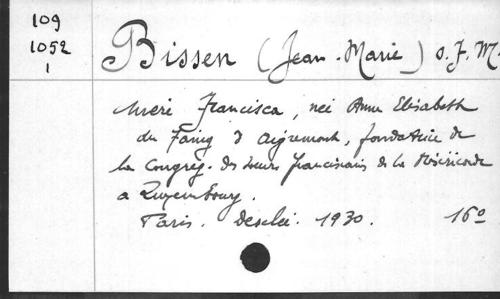 109
1052
1
Bissen (Jean-Marie) O.F.M.
Mère Francisca, née Anne Elisabeth
du Faing d'Aigremont, fondatrice de
la Congrég. des Sœurs franciscain. de la Miséricorde
a Luxembourg.
Paris. Desclée. 1930. 16°